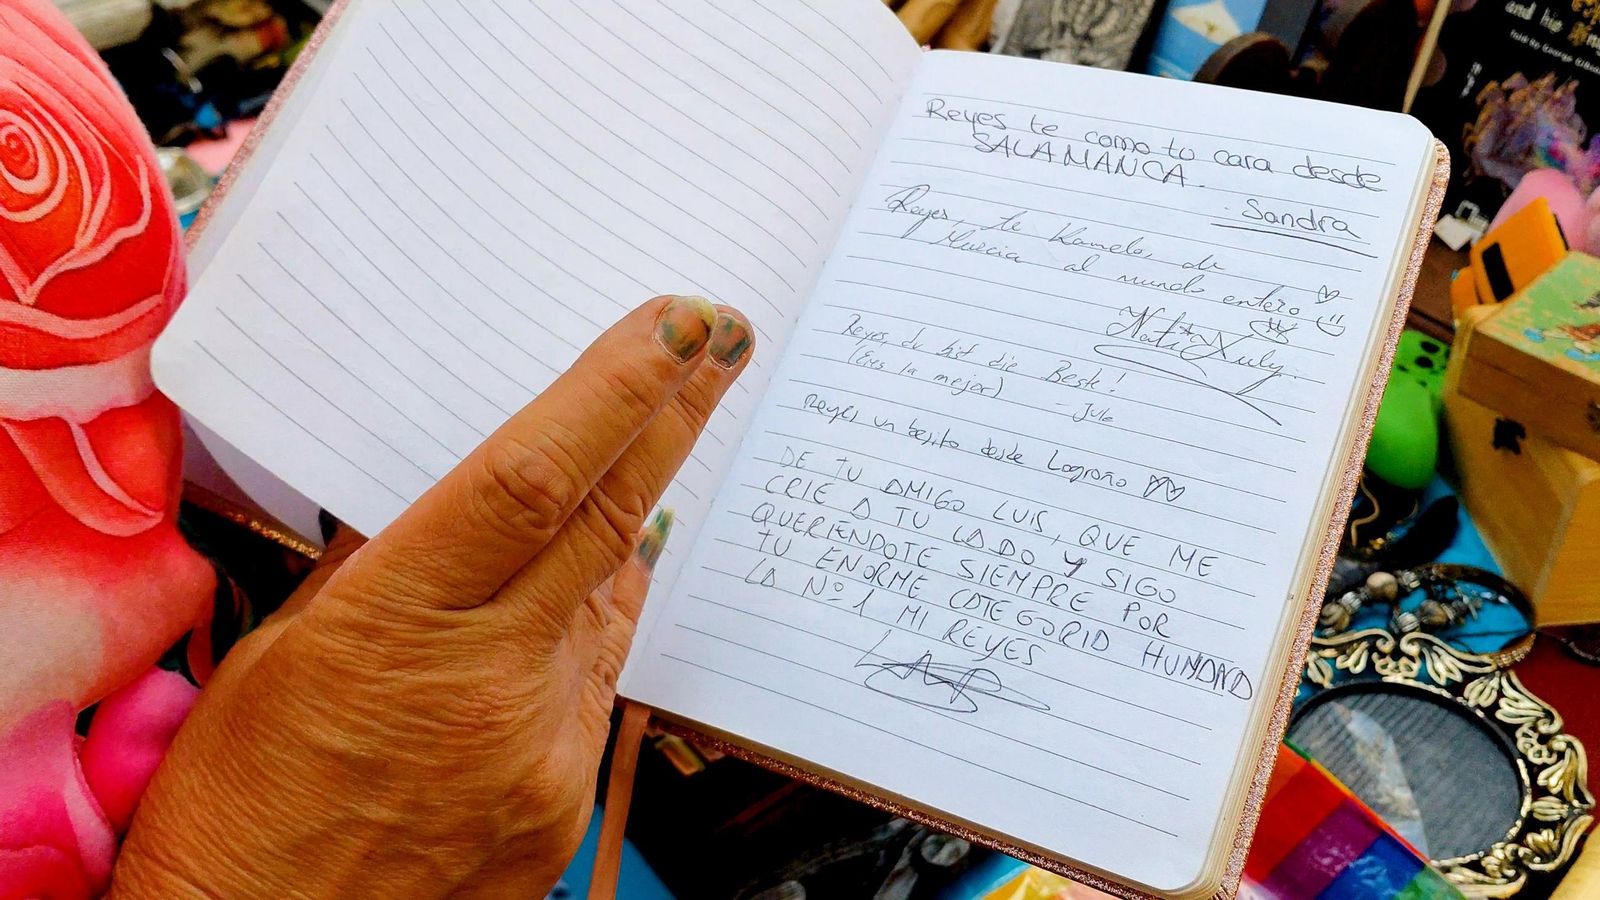 Reyes te como tu cara desde
SALAMANCA.
Sandra
Reyes, te kamelo, de
Murcia al mundo entero
Reyes du bist die Beste!
(Eres la mejor) - Jule
Reyes un besito desde Logroño
DE TU AMIGO LUIS, QUE ME
CRIE A TU LADO Y SIGO
QUERIENDOTE SIEMPRE POR
TU ENORME CATEGORIA HUMANA
LA Nº 1 MI REYES
and his
Told to George